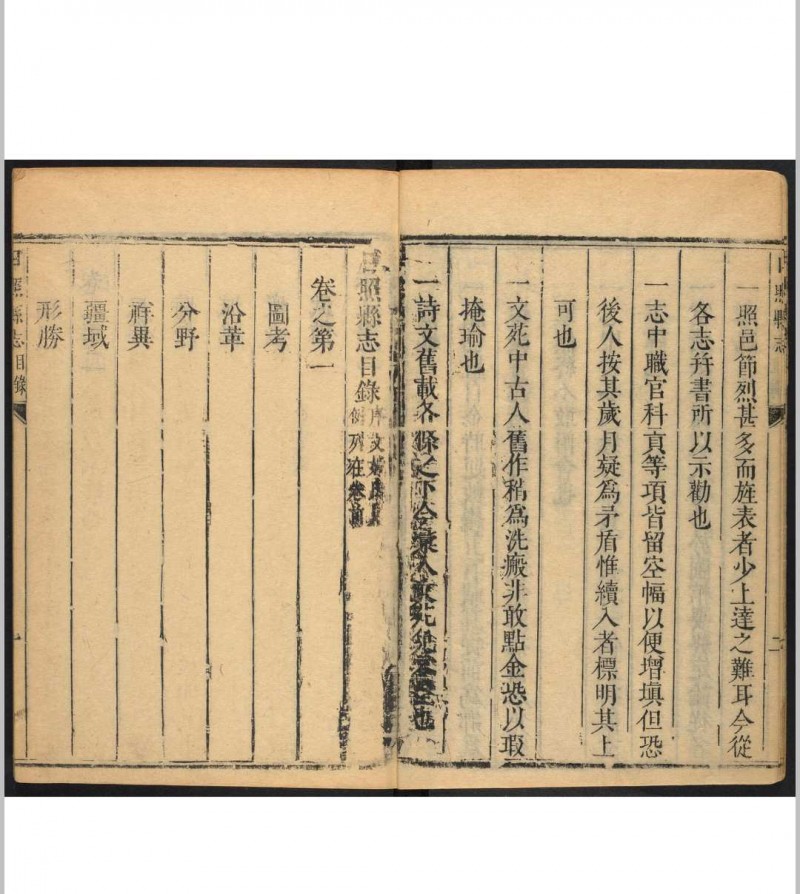 日照縣志
二
一照邑節烈甚多而旌表者少上達之難耳今從
各志幷書所以示勸也
一志中職官科貢等項皆留空幅以便增塡但恐
後人按其歲月疑爲矛盾惟續入者標明其上
可也
一文苑中古人舊作稍爲洗瘢非敢點金恐以瑕
掩瑜也
一詩文舊載各條之下今彙入文苑
日照縣志目錄
例列在卷前
卷之第一
圖考
沿革
分野
祥異
疆域
形勝
日照縣志目錄
一